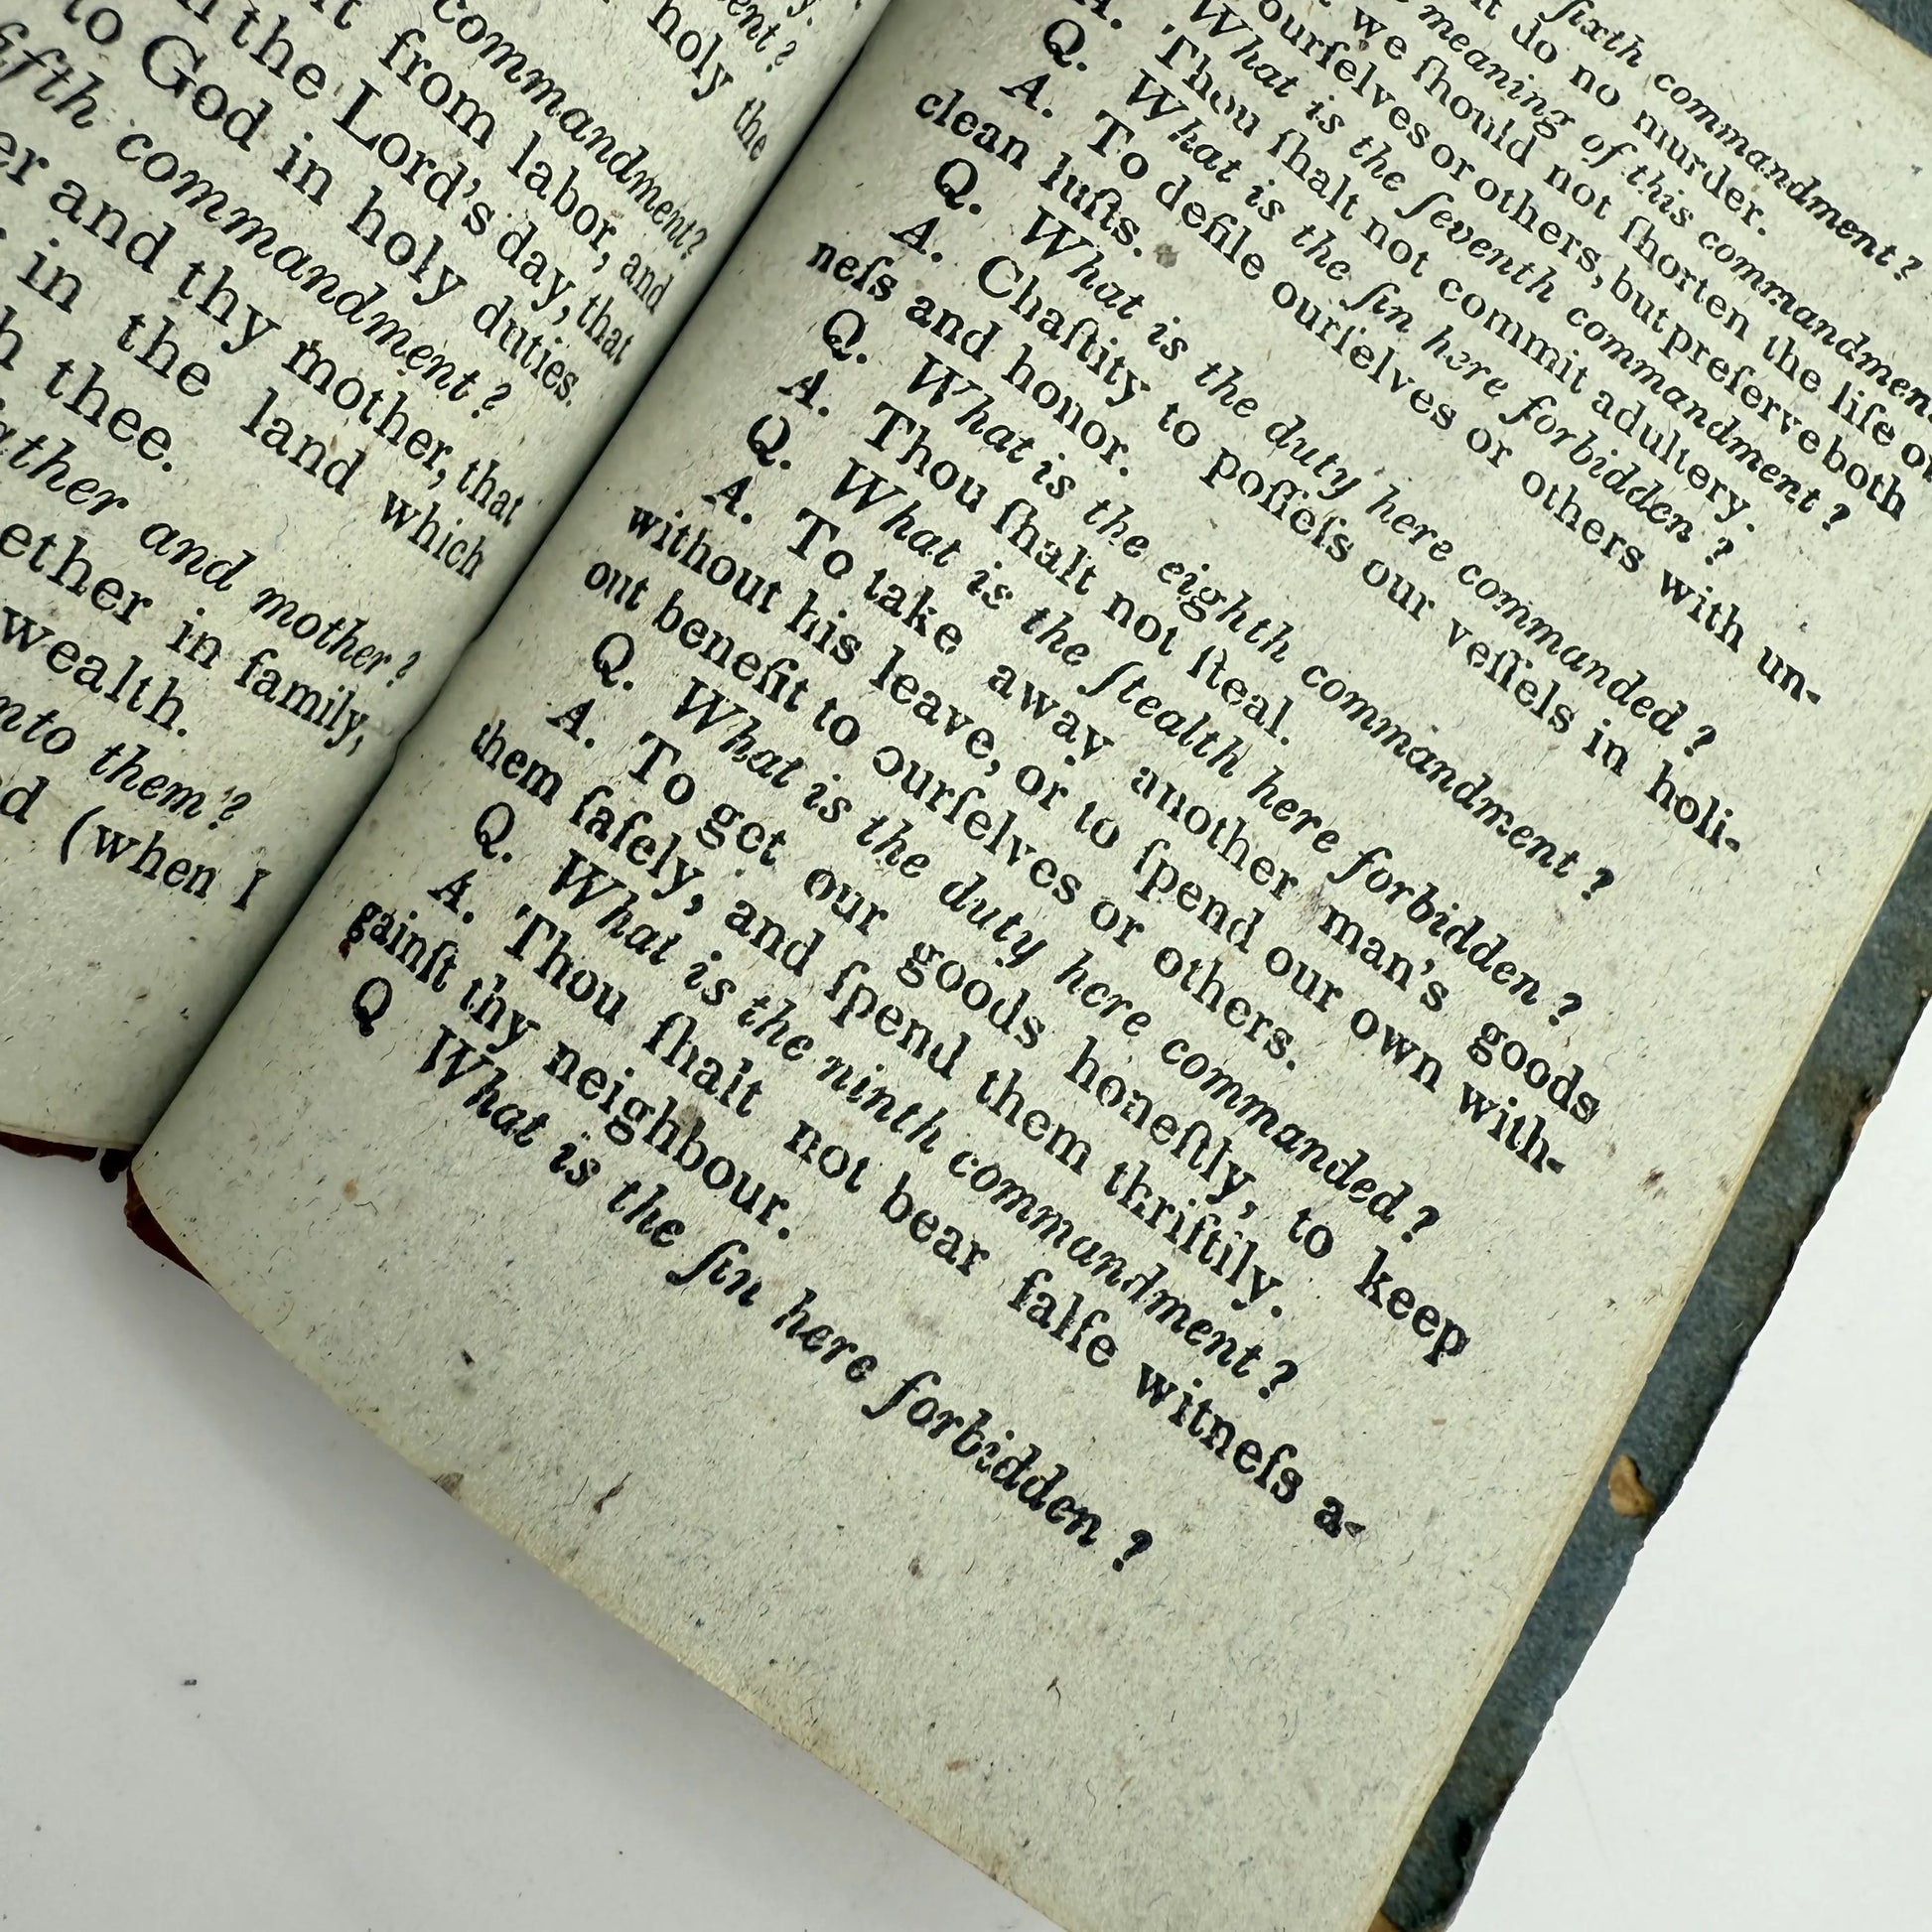 ent?
holy the
commandment?
from labor, and
the Lord's day, that
to God in holy duties.
fifth commandment?
er and thy mother, that
in the land which
h thee.
ather and mother?
ether in family,
wealth.
nto them?
d (when I
ſixth commandment?
do no murder.
meaning of this commandmen
we ſhould not ſhorten the life o
ourſelves or others, but preſerve both
What is the ſeventh commandment?
A. Thou ſhalt not commit adultery.
Q. What is the ſin here forbidden?
A. To defile ourſelves or others with un-
clean luſts.
Q. What is the duty here commanded?
A. Chaſtity to poſſeſs our veſſels in holi-
neſs and honor.
Q. What is the eighth commandment?
A. Thou ſhalt not ſteal.
Q. What is the ſtealth here forbidden?
A. To take away another man's goods
without his leave, or to ſpend our own with-
out benefit to ourſelves or others.
Q. What is the duty here commanded?
A. To get our goods honeſtly, to keep
them ſafely, and ſpend them thriftily.
Q. What is the ninth commandment?
A. Thou ſhalt not bear falſe witneſs a-
gainſt thy neighbour.
Q What is the ſin here forbidden?